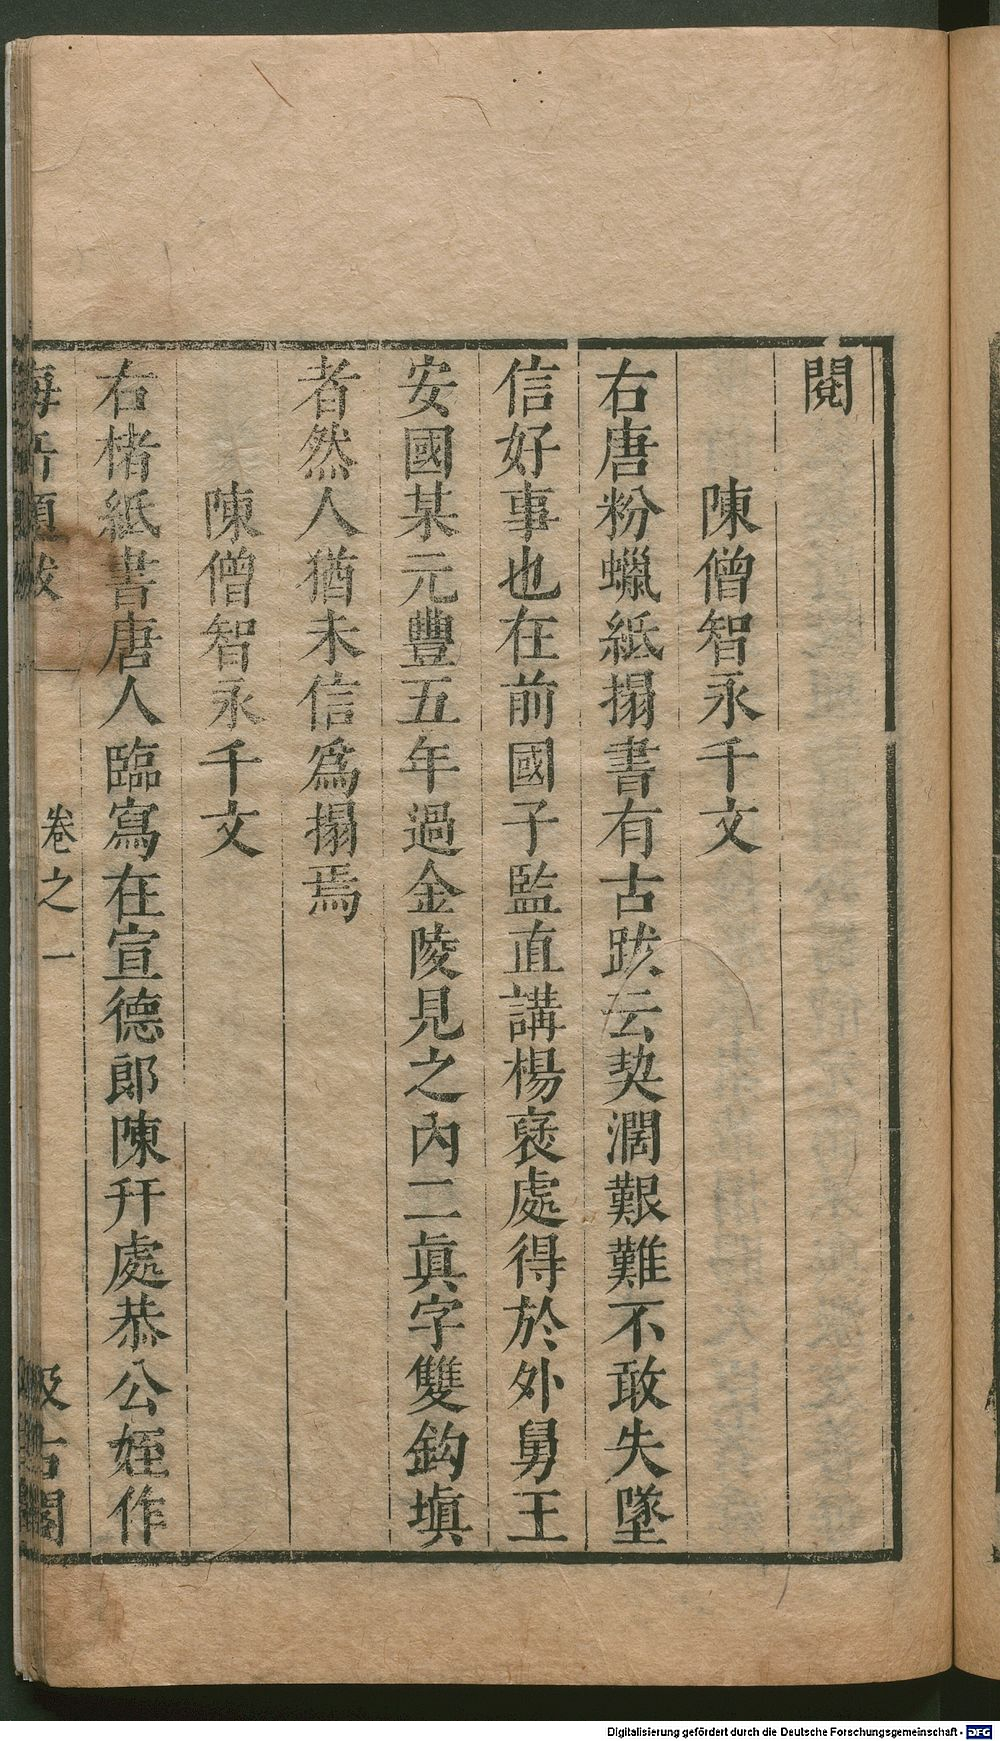 閱
陳僧智永千文
右唐粉蠟紙搨書有古䟦云契濶艱難不敢失墜
信好事也在前國子監直講楊褒處得於外舅王
安國某元豐五年過金陵見之內二眞字雙鈎塡
者然人猶未信爲搨焉
陳僧智永千文
右楮紙書唐人臨寫在宣德郎陳幵處恭公姪作
海岳題跋
卷之一
汲古閣
Digitalisierung gefördert durch die Deutsche Forschungsgemeinschaft - DFG